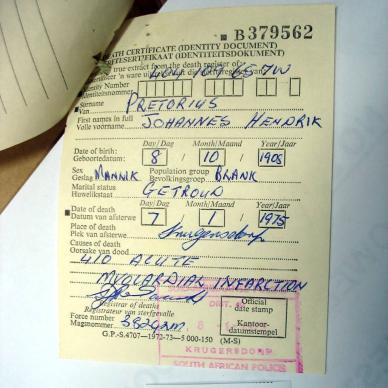 B379562
DEATH CERTIFICATE (IDENTITY DOCUMENT)
(IDENTITEITSDOKUMENT)
true extract from the death register of
Identity Number
Identiteitsnommer
Surname
Van
PRETORIUS
First names in full
Volle voorname
JOHANNES HENDRIK
Day/Dag Month/Maand Year/Jaar
Date of birth:
Geboortedatum:
8 10 1908
Sex
Geslag MANLIK
Population group
Bevolkingsgroep BLANK
Marital status
Huwelikstaat GETROUD
Day/Dag Month/Maand Year/Jaar
Date of death
Datum van afsterwe
7 1 1975
Place of death
Plek van afsterwe Krugersdorp
Causes of death
Oorsake van dood
410 ACUTE
MYOCARDIAL INFARCTION
Registrar of deaths
Registrateur van sterfgevalle
Force number
Magsnommer
Official
date stamp
Kantoor-
datumstempel
G.P.-S.4707—1972-73—5 000-150 (M-S)
KRUGERSDORP
SOUTH AFRICAN POLICE